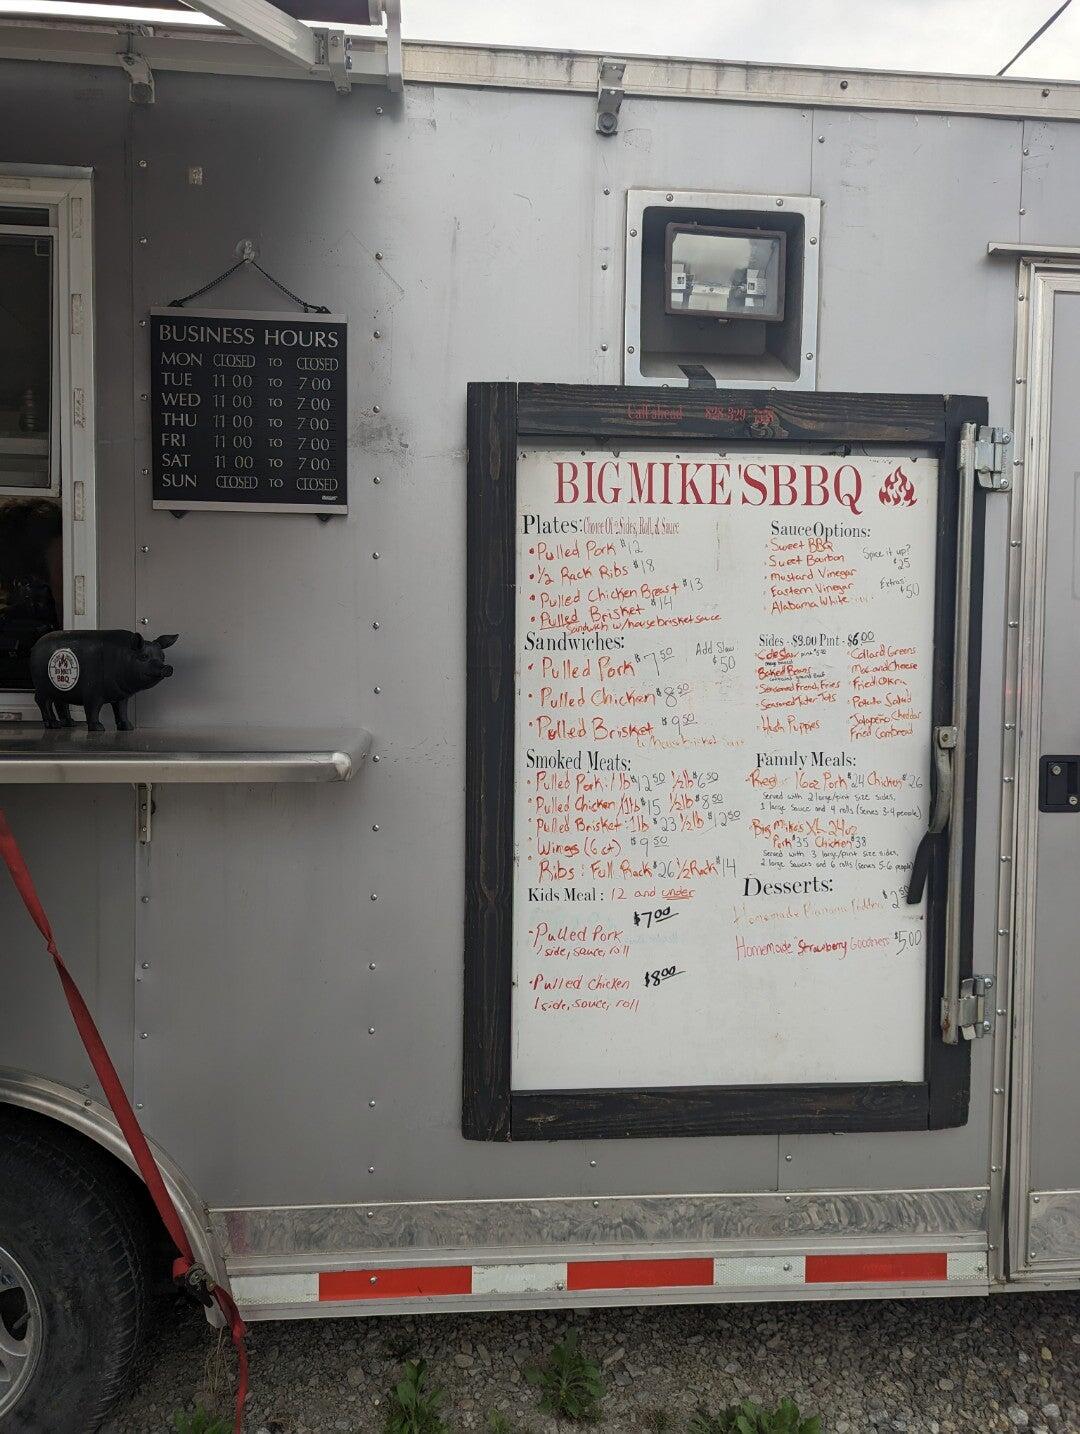 BUSINESS HOURS
MON CLOSED TO CLOSED
TUE 11 00 TO 7 00
WED 11 00 TO 7 00
THU 11 00 TO 7 00
FRI 11 00 TO 7 00
SAT 11 00 TO 7 00
SUN CLOSED TO CLOSED
BBQ
Call ahead 828-329-
BIG MIKE'S BBQ
Plates: Choice Of 2 Sides, Roll, & Sauce
• Pulled Pork $12
• 1/2 Rack Ribs $18
• Pulled Chicken Breast $13
• Pulled Brisket $14
Sandwich w/house brisket sauce
Sandwiches:
Add Slaw
$.50
• Pulled Pork $7.50
• Pulled Chicken $8.50
• Pulled Brisket $9.50
w/house brisket sauce
Smoked Meats:
• Pulled Pork: 1 lb $12.50 1/2 lb $6.50
• Pulled Chicken: 1 lb $15 1/2 lb $8.50
• Pulled Brisket: 1 lb $23 1/2 lb $12.50
• Wings (6 ct) $9.50
• Ribs: Full Rack $26 1/2 Rack $14
Kids Meal: 12 and under
• Pulled Pork $7.00
1 side, sauce, roll
• Pulled Chicken $8.00
1 side, sauce, roll
Sauce Options:
• Sweet BBQ
• Sweet Bourbon
• Mustard Vinegar
• Eastern Vinegar
• Alabama White
Spice it up?
$.25
Extras:
$.50
Sides - $3.00 Pint - $6.00
• Cole Slaw
• Baked Beans
• Seasoned French Fries
• Seasoned Tater Tots
• Hush Puppies
• Collard Greens
• Mac and Cheese
• Fried Okra
• Potato Salad
• Jalapeño Cheddar
Fried Cornbread
Family Meals:
• Reg - 16oz Pork $24 Chicken $26
Served with 2 large/pint size sides,
1 large sauce and 4 rolls (serves 3-4 people)
• Big Mike's XL 24oz
Pork $35 Chicken $38
Served with 3 large/pint size sides,
2 large sauces and 6 rolls (serves 5-6 people)
Desserts:
Homemade Banana Pudding $2.50
Homemade Strawberry Goodness $5.00